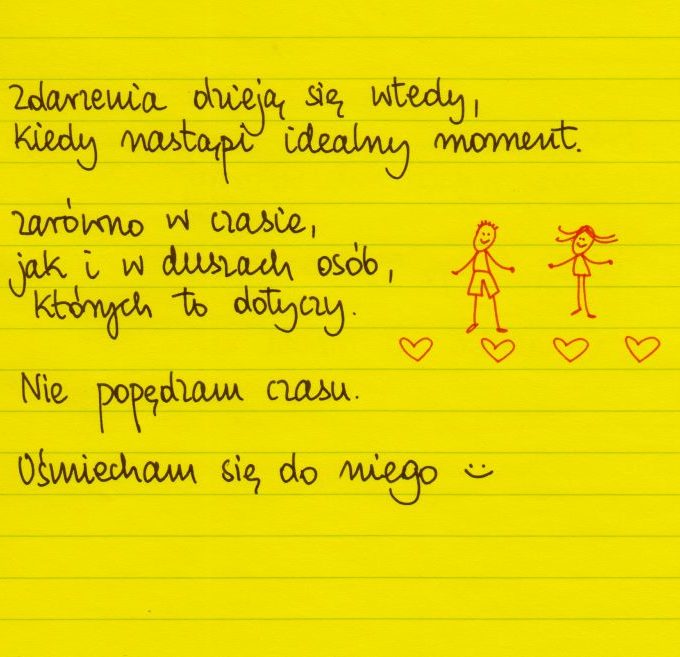 Zdarzenia dzieją się wtedy,
kiedy nastąpi idealny moment.
zarówno w czasie,
jak i w duszach osób,
których to dotyczy.
Nie popędzam czasu.
Uśmiecham się do niego :)